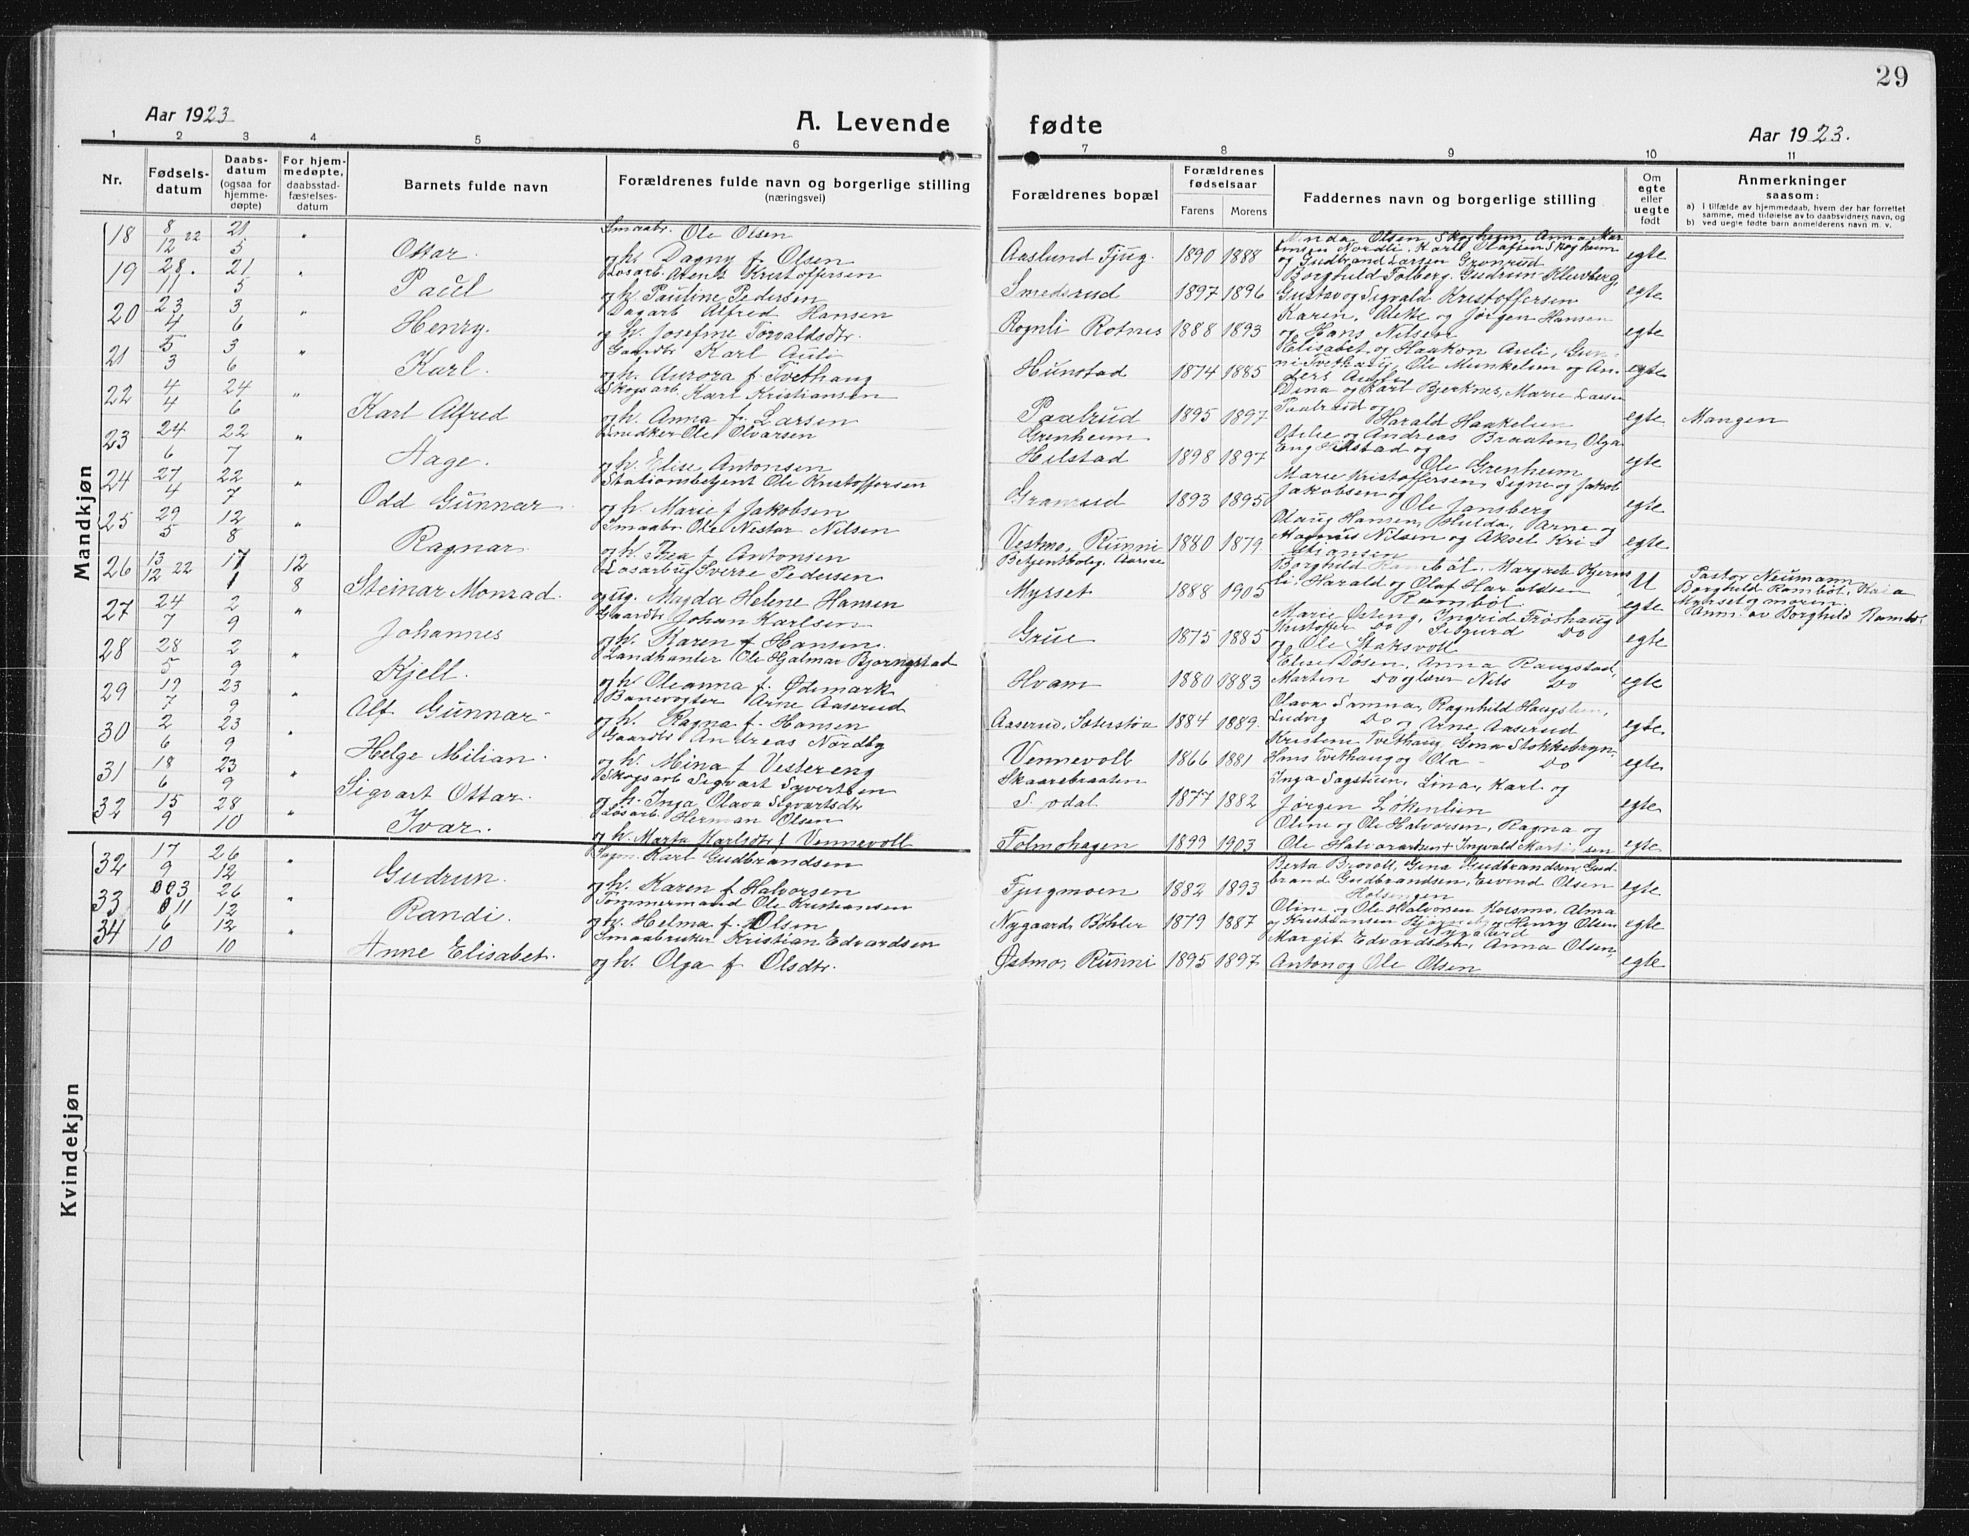 29
Aar 1923
A. Levende fødte
Aar 1923.
1 2 3 4 5 6 7 8 9 10 11
Nr.
Fødsels-
datum
Daabs-
datum
(ogsaa for
hjemme-
døpte)
For hjem-
medøpte,
daabsstad-
fæstelses-
datum
Barnets fulde navn
Forældrenes fulde navn og borgerlige stilling
(næringsvei)
Forældrenes bopæl
Forældrenes
fødselsaar
Farens Morens
Faddernes navn og borgerlige stilling
Om
egte
eller
uegte
født
Anmerkninger
saasom:
a) I tilfælde av hjemmedaab, hvem der har forrettet
samme, med tilføielse av to daabsvidners navn, og
b) ved uegte fødte barn anmelderens navn m. v.
Mandkjøn
18 8/12 22 21/5 " Ottar. Smaabr. Ole Olsen
og h. Dagny f. Olsen Aaslund Fjug. 1890 1888 Olsen Skogheim, Anna Mar-
tinsen Nordli. Karl Olafsen Skogheim
og Gudbrand Larsen Grønrud egte
19 28/11 21/5 " Paul Losarb. Kristoffersen
og h. Pauline Pedersen Smedsrud 1897 1896 Borghild Tolberg, Gudrun Kleivberg,
Gustav og Sigvald Kristoffersen egte
20 23/4 3/6 " Henry. Dagarb Alfred Hansen
og h. Josefine Torvaldsdtr. Rognli Rotnes 1888 1893 Karen, Alette og Jørgen Hansen
og Hans Nilsen egte
21 5/3 3/6 " Karl. Gaardbr Karl Auli
og h. Aurora f. Tvethaug Hunstad 1874 1885 Elisabet og Haakon Auli, Gun-
ni Tvethaug, Ole Munkelsen og An-
ders Auli egte
22 4/4 24/6 " Karl Alfred Skogsarb. Karl Kristiansen
og h. Anna f. Larsen Paalrud 1895 1897 Dina og Karl Bjerknes, Marie Larsen
Paalrud og
Harald Haakelsen egte Mangen
23 24/6 22/7 " Aage. Snidker Ole Olvarsen
og h. Elise Antonsen Grenheim
Hilstad 1898 1897 Otelie og Andreas Braaten, Olga
Eng Hilstad og
Ole Grenheim egte
24 27/4 22/7 " Odd Gunnar Stationsbetjent Ole Kristoffersen
og h. Marie f Jakobsen Granrud 1893 1895 Marie Kristoffersen, Signe og Jakob
Jakobsen og
Ole Jansberg egte
25 29/5 12/8 " Ragnar Smaabr Ole Nestor Nilsen
og h. Thea f. Antonsen Vestmo, Runni 1880 1879 Olaug Hansen, Hulda, Arne og
Magnus Nilsen og Aksel Kri-
stiansen egte
26 13/12 22 17/1 12/8 Steinar Monrad. Losarb Sverre Pedersen
og ug. Magda Helene Hansen Betjentbolig. Aarnes
Mysset 1888 1905 Borghild Rambøl. Margrete Hjerns-
li. Harald og Olaf Haraldsen
Rambøl U Pastor Neumann
Borghild Rambøl, Kaia
Mysset og moren.
Anm. av Borghild Rambøl.
27 24/7 2/9 " Johannes Gaardbr Johan Karlsen
og h. Karen f Hansen. Grue 1875 1885 Marie Østeng, Ingrid Frøshaug
Kristoffer Do Sigurd Do
og Ole Staksvoll egte egte
28 28/5 2/9 " Kjell. Landhanler Ole Hjalmar Bjørnstad
og h. Oleanna f. Ødemark Hvam 1880 1883 Elise Døsen, Anna Raugstad,
Marten Do glærer Nils Do egte
29 19/7 23/9 " Alf Gunnar Banevogter Arne Aaserud
og h. Ragna f. Hansen Aaserud, Sæterstøa 1884 1889. Olava Samna, Ragnhild Haugstein,
Ludvig Do og Arne Aaserud egte.
30 2/6 23/9 " Helge Milian. Gaardbr Andreas Nordby
og h. Mina f Vestereng Vennevoll 1866 1881 Kristene Tvethaug, Gina Stokkebryn.
Hans Tvethaug og Ola – Do egte
31 18/6 23/9 " Sigvart Ottar. Skogsarb Sigvart Syvertsen
og h. Inga Olava Sigvartsdtr Skaarebraaten
S. Odal. 1877 1882 Inga Sagstuen, Lina, Karl og
Jørgen Løkenlien egte
32 15/9 28/10 " Ivar. Losarb. Herman Olsen
og h. Marta Karlsdtr f Vennevoll Folmohagen 1899 1903 Oline og Ole Halvorsen, Ragna og
Ole Halvorsen + Ingvald Mart sen egte
Kvindekjøn
32 17/9 26/12 " Gudrun. Sagm. Karl Gudbrandsen
og h. Karen f Halvorsen Fjugmoen 1882 1893 Berta Brovoll, Gina Gudbrandsen, Gud-
brand Gudbrandsen, Eivind Olsen
egte
33 3/11 26/12 " Randi. Tømmermand Ole Kristiansen
og h. Helma f. Olsen Nygaard, Bøhler 1879 1887 Oline og Ole Halvorsen Korsmo, Alma
og Kristiansen og Henry Olsen
Nygaard egte
34 6/10 12/10 " Anne Elisabet. Smaabruker Kristian Edvardsen
og h. Olga f Olsdtr. Østmo, Runni 1895 1897 Margit Edvardsen, Anna Olsen,
Anton og Ole Olsen egte